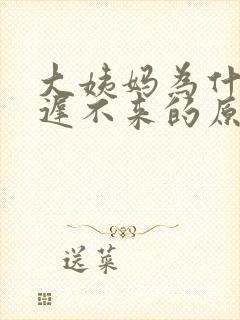 大姨妈为什
遲不来的原
送菜